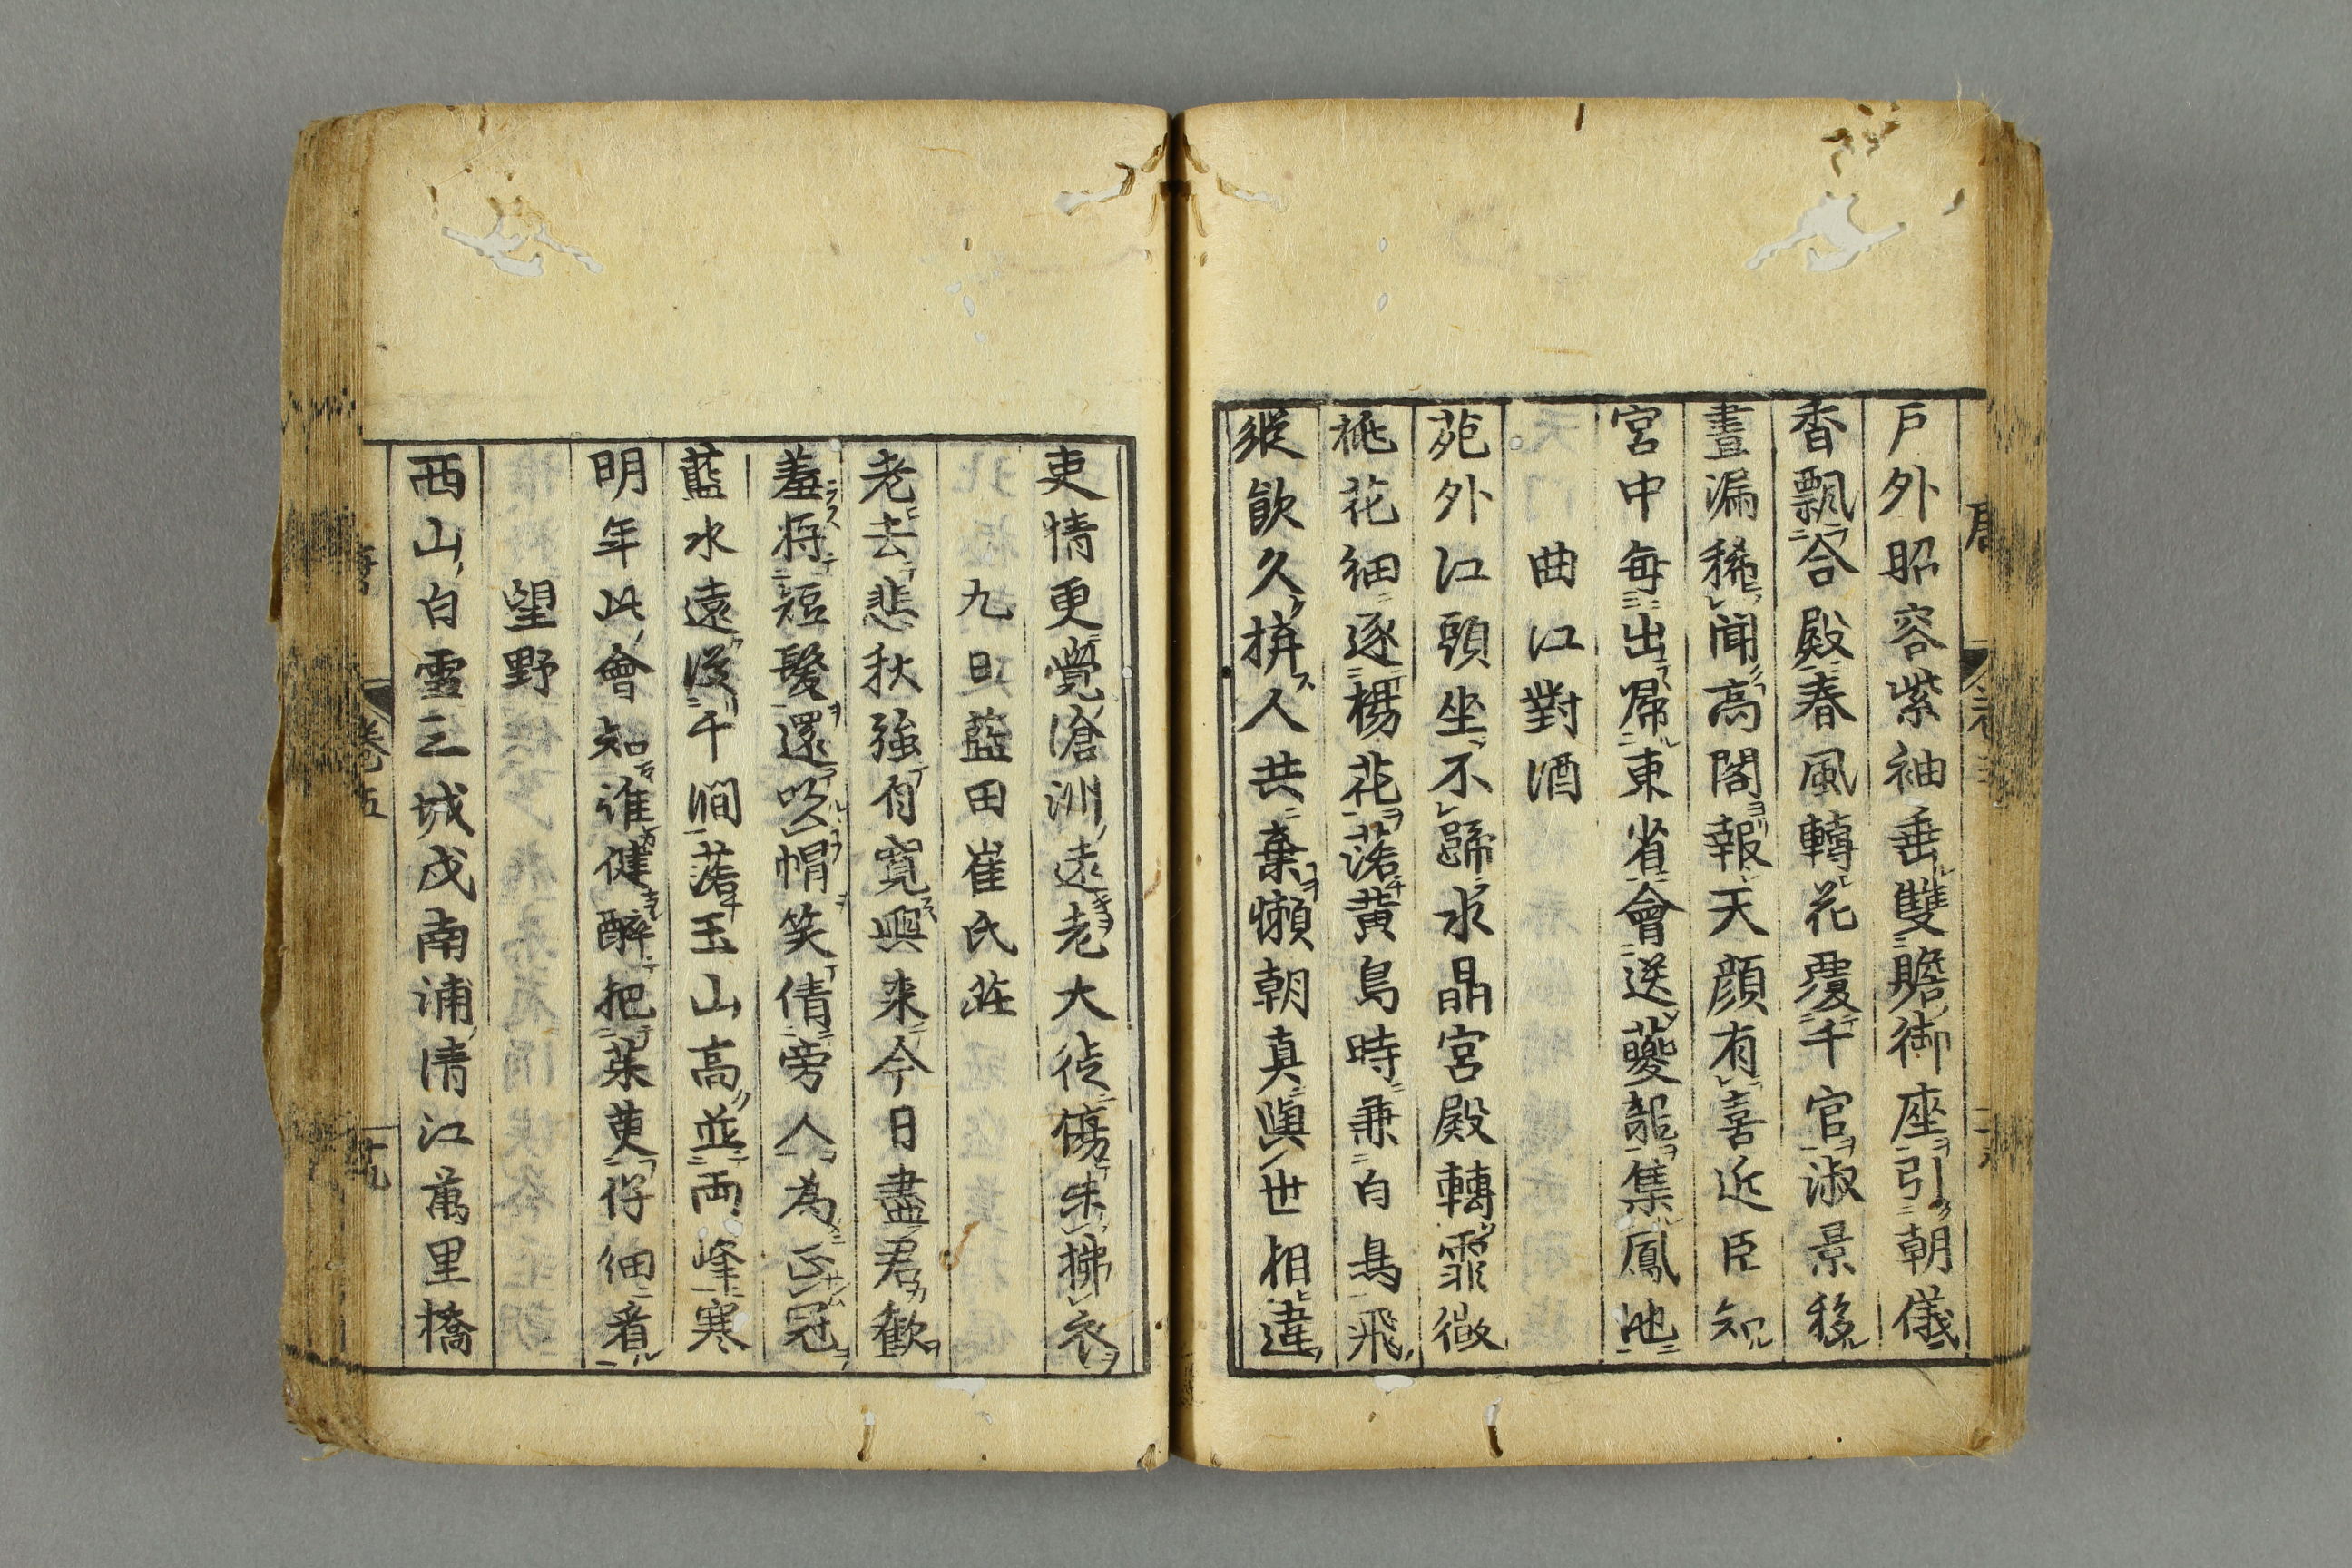 戶外昭容紫袖垂雙瞻御座引朝儀
香飄合殿春風轉花覆千官淑景移
晝漏稀聞高閣報天顔有喜近臣知
宮中每出帰東省會送夔龍集鳳池
曲江對酒
苑外江頭坐不歸水晶宮殿轉霏微
桃花細逐楊花落黃鳥時兼白鳥飛
縱飲久拚人共棄懶朝真與世相違
吏情更覺滄洲遠老大徒傷未拂衣
九日藍田崔氏莊
老去悲秋強自寬興来今日盡君歡
羞將短髮還吹帽笑倩旁人為正冠
藍水遠從千澗落玉山高並兩峰寒
明年此會知誰健醉把茱萸仔細看
望野
西山白雪三城戍南浦清江萬里橋
卷五
十九